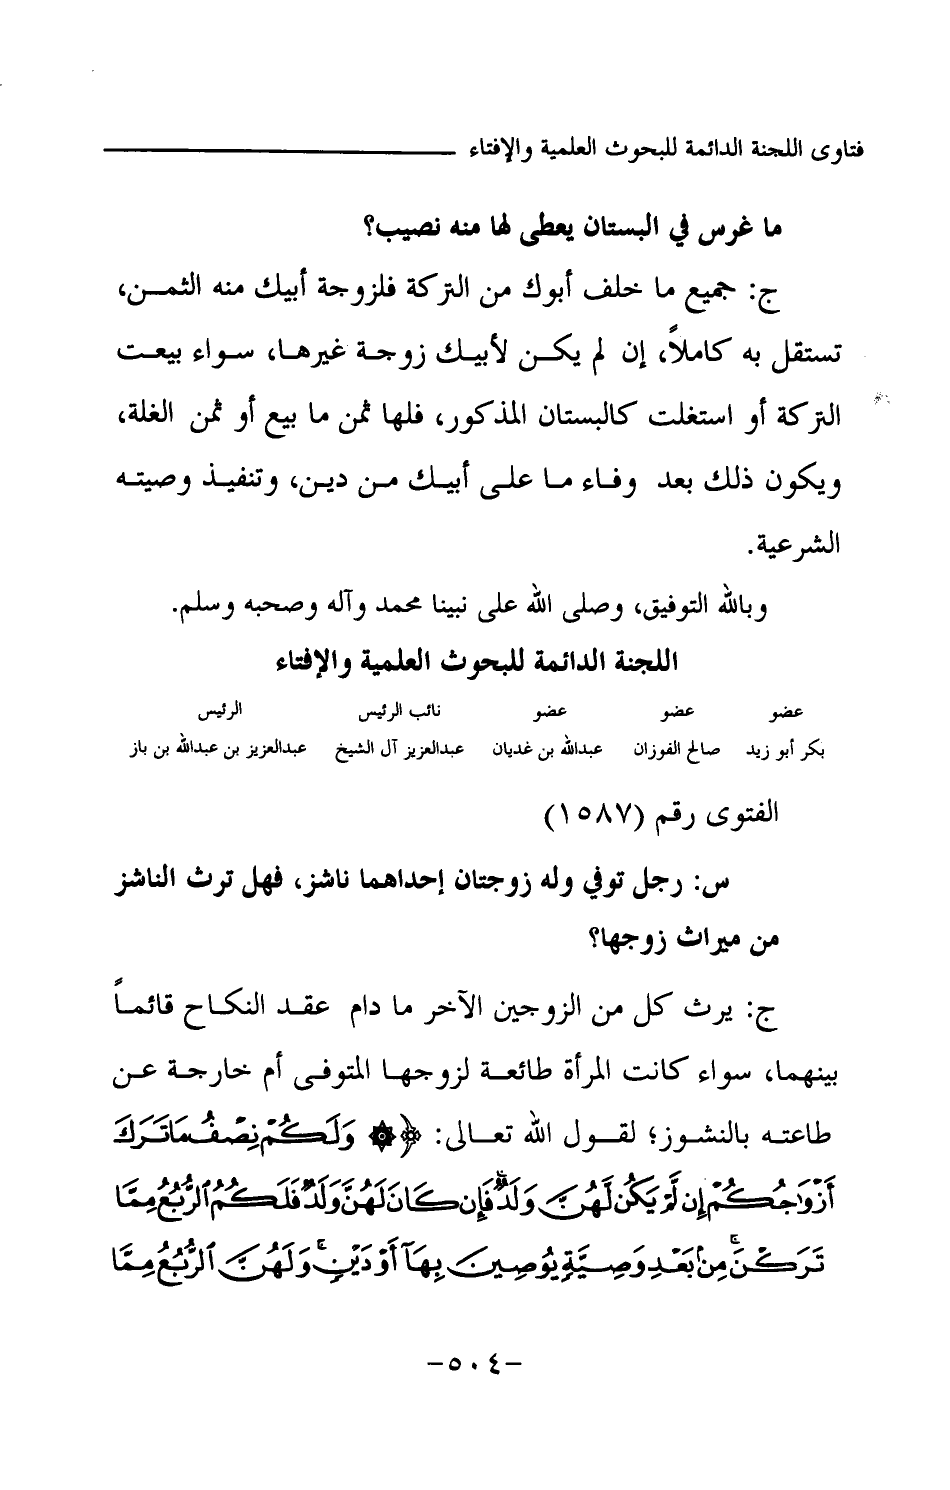 فتاوى اللجنة الدائمة للبحوث العلمية والإفتاء
ما غرس في البستان يعطى لها منه نصيب؟
ج: جميع ما خلف أبوك من التركة فلزوجة أبيك منه الثمـن،
تستقل به كاملاً، إن لم يكـن لأبيـك زوجـة غيرهـا، سـواء بيعـت
التركة أو استغلت كالبستان المذكور، فلها ثمن ما بيع أو ثمن الغلة،
ويكون ذلك بعد وفـاء مـا علـى أبيـك مـن ديـن، وتنفيـذ وصيتـه
الشرعية.
وبالله التوفيق، وصلى الله على نبينا محمد وآله وصحبه وسلم.
اللجنة الدائمة للبحوث العلمية والإفتاء
عضو عضو عضو نائب الرئيس الرئيس
بكر أبو زيد صالح الفوزان عبدالله بن غديان عبدالعزيز آل الشيخ عبدالعزيز بن عبدالله بن باز
الفتوى رقم (١٥٨٧)
س: رجل توفي وله زوجتان إحداهما ناشز، فهل ترث الناشز
من ميراث زوجها؟
ج: يرث كل من الزوجين الآخر ما دام عقـد النكـاح قائمـاً
بينهما، سواء كانت المرأة طائعـة لزوجهـا المتوفـى أم خارجـة عـن
طاعتـه بالنشـوز؛ لقـول الله تعـالى: ﴿۞ وَلَكُمْ نِصْفُ مَا تَرَكَ
أَزْوَاجُكُمْ إِن لَّمْ يَكُن لَّهُنَّ وَلَدٌ ۚ فَإِن كَانَ لَهُنَّ وَلَدٌ فَلَكُمُ ٱلرُّبُعُ مِمَّا
تَرَكْنَ ۚ مِنۢ بَعْدِ وَصِيَّةٍ يُوصِينَ بِهَآ أَوْ دَيْنٍ ۚ وَلَهُنَّ ٱلرُّبُعُ مِمَّا
-٥٠٤-